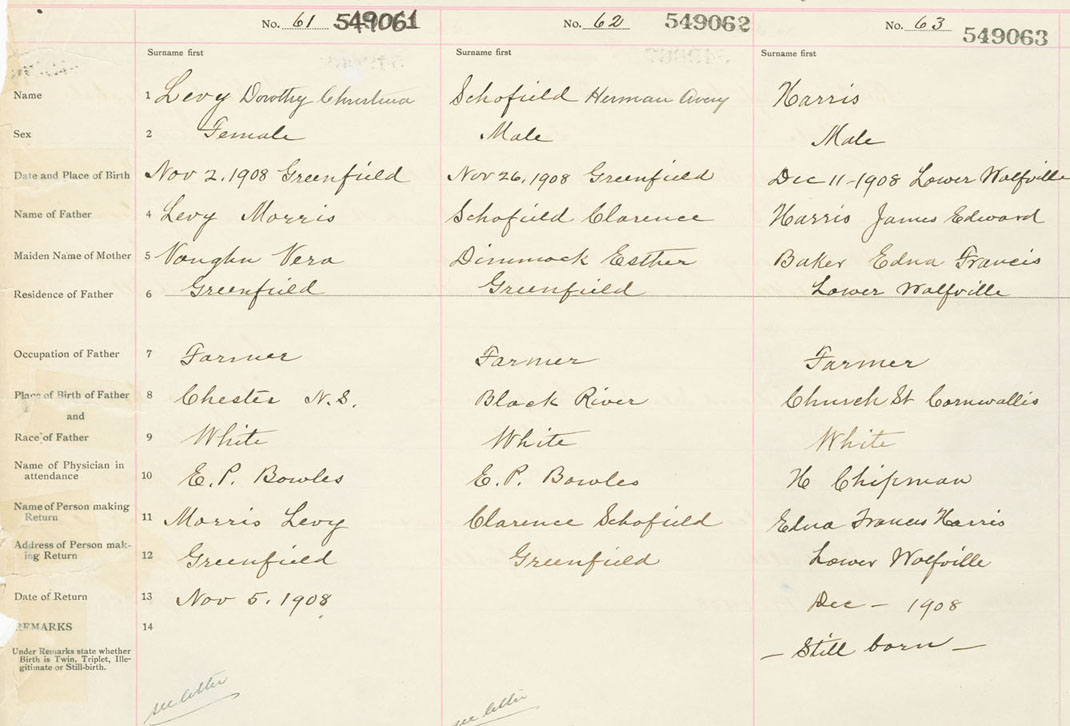 No. 61 549061 No. 62 549062 No. 63 549063
Surname first Surname first Surname first
Name 1 Levy Dorothy Christina Schofield Herman Avery Harris
Sex 2 Female Male Male
Date and Place of Birth 3 Nov 2, 1908 Greenfield Nov 26, 1908 Greenfield Dec 11-1908 Lower Wolfville
Name of Father 4 Levy Morris Schofield Clarence Harris James Edward
Maiden Name of Mother 5 Vaughn Vera Dimmock Esther Baker Edna Francis
Residence of Father 6 Greenfield Greenfield Lower Wolfville
Occupation of Father 7 Farmer Farmer Farmer
Place of Birth of Father 8 Chester N.S. Black River Church St Cornwallis
and
Race of Father 9 White White White
Name of Physician in
attendance 10 E. P. Bowles E. P. Bowles H Chipman
Name of Person making
Return 11 Morris Levy Clarence Schofield Edna Francis Harris
Address of Person mak-
ing Return 12 Greenfield Greenfield Lower Wolfville
Date of Return 13 Nov 5. 1908 Dec - 1908
REMARKS 14
Under Remarks state whether
Birth is Twin, Triplet, Ille-
gitimate or Still-birth.
- Still born -
see letter see letter